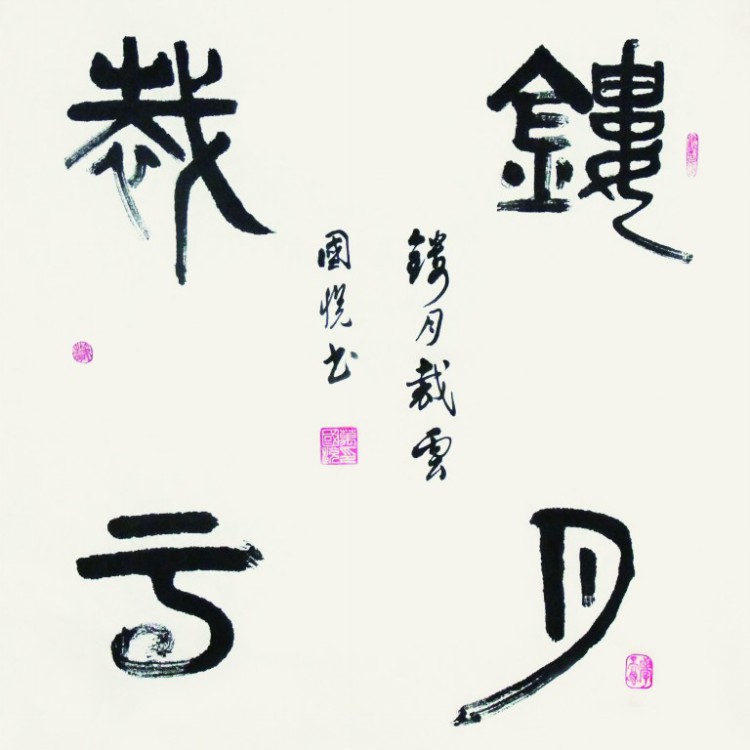 鏤月
裁云
鏤月裁雲
國悦书